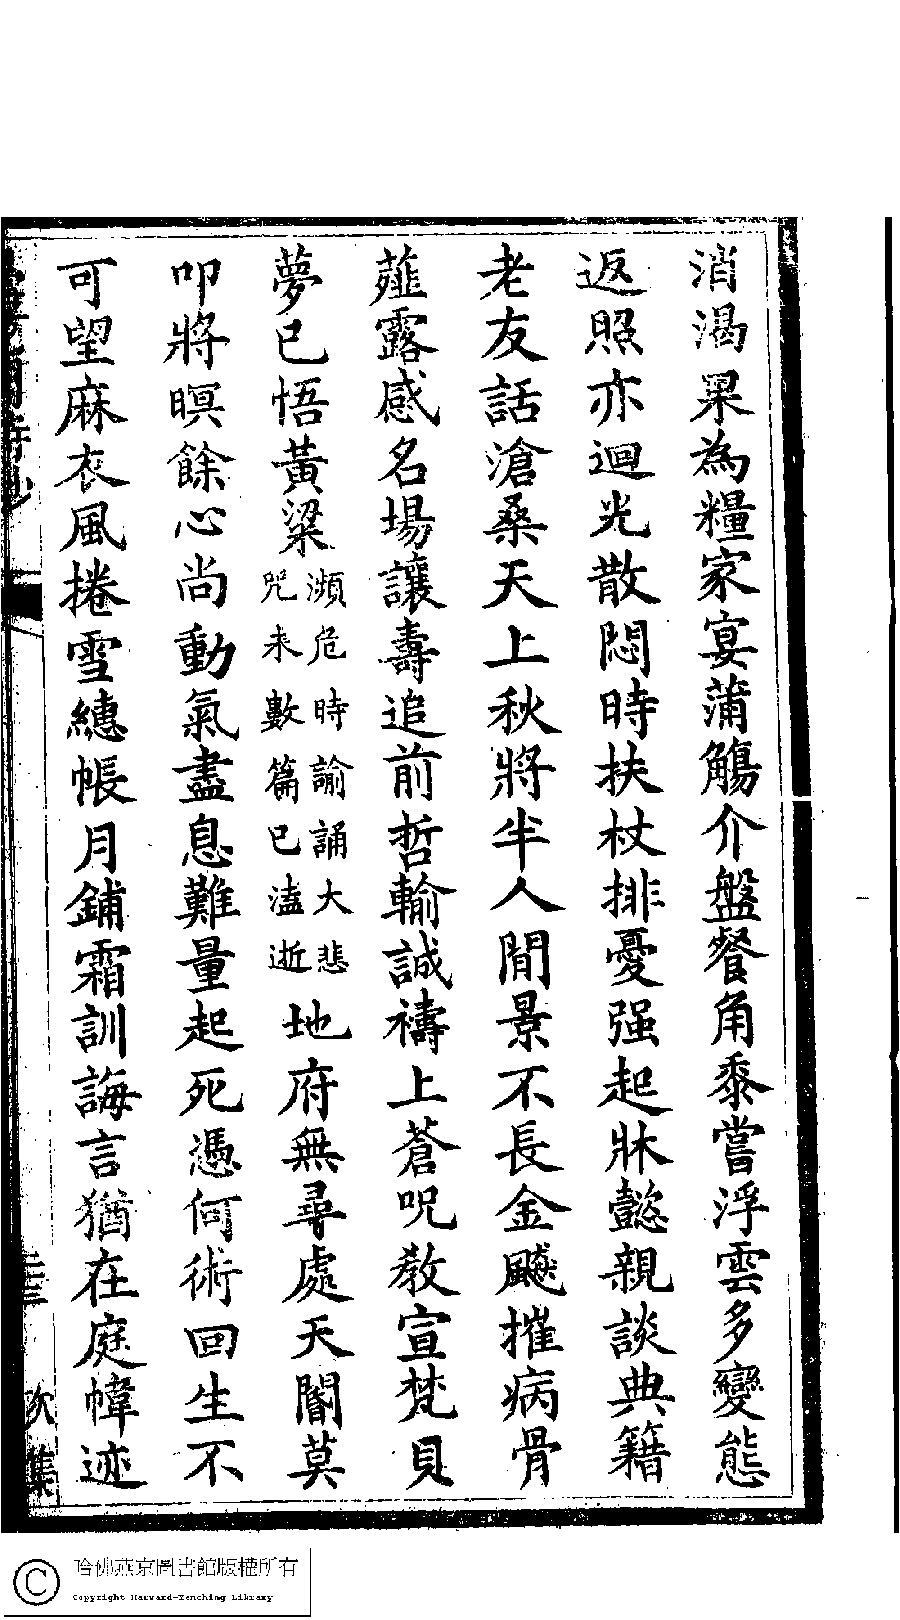 消渴果為糧家宴蒲觴介盤餐角黍嘗浮雲多變態
返照亦迴光散悶時扶杖排憂强起牀懿親談典籍
老友話滄桑天上秋將半人間景不長金飈摧病骨
薤露感名場讓壽追前哲輸誠禱上蒼呪教宣梵貝
夢已悟黃粱
瀕危時諭誦大悲
咒未數篇已溘逝
地府無尋處天閽莫
叩將暝餘心尚動氣盡息難量起死憑何術回生不
可望麻衣風捲雪繐帳月鋪霜訓誨言猶在庭幃迹
二十三
哈佛燕京圖書館版權所有
Copyright Harvard-Yenching Library